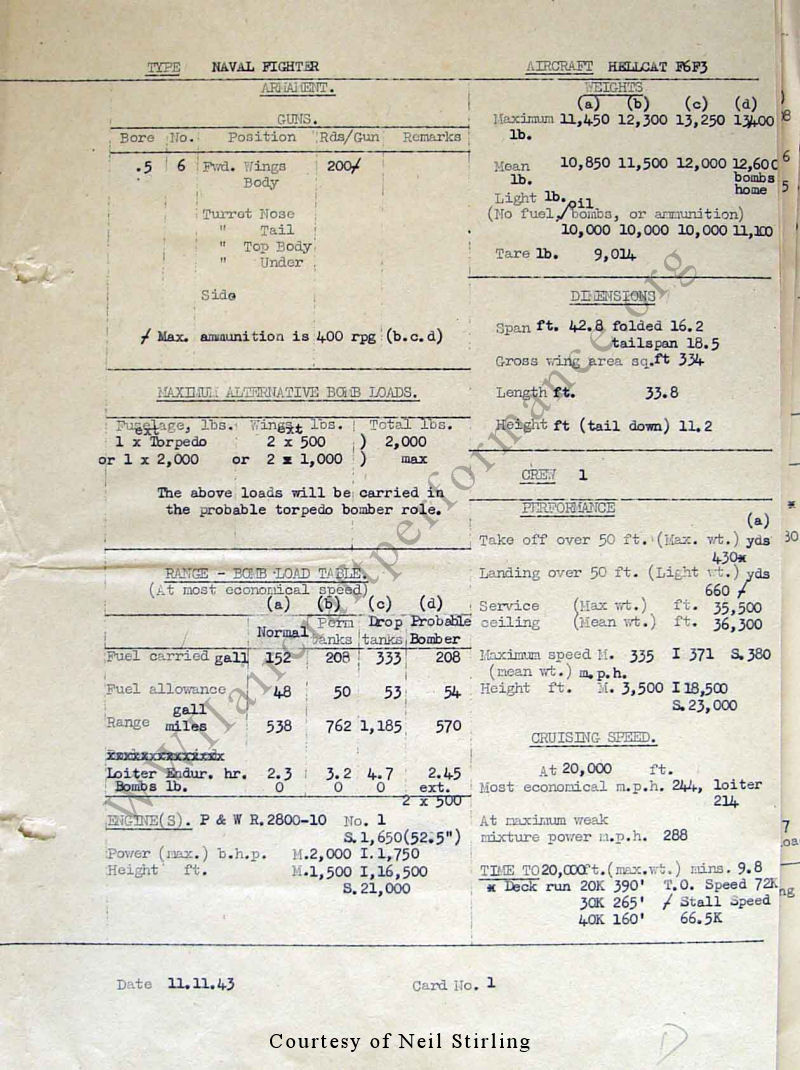 TYPE NAVAL FIGHTER
ARMAMENT.
GUNS.
Bore No. Position Rds/Gun Remarks
.5 6 Fwd. Wings 200/
Body
Turret Nose
" Tail
" Top Body
" Under
Side
/ Max. ammunition is 400 rpg (b.c.d)
MAXIMUM ALTERNATIVE BOMB LOADS.
Fuselage, lbs. Wings lbs. Total lbs.
ext ext
1 x Torpedo 2 x 500 ) 2,000
or 1 x 2,000 or 2 x 1,000 ) max
The above loads will be carried in
the probable torpedo bomber role.
RANGE - BOMB LOAD TABLE.
(At most economical speed)
(a) (b) (c) (d)
Normal Perm tanks Drop tanks Probable Bomber
Fuel carried gall 152 208 333 208
Fuel allowance 48 50 53 54
gall
Range miles 538 762 1,185 570
Loiter Endur. hr. 2.3 3.2 4.7 2.45
Bombs lb. 0 0 0 ext.
2 x 500
ENGINE(S). P & W R.2800-10 No. 1
S.1,650(52.5")
Power (max.) b.h.p. M.2,000 I.1,750
Height ft. M.1,500 I,16,500
S.21,000
AIRCRAFT HELLCAT F6F3
WEIGHTS
(a) (b) (c) (d)
Maximum 11,450 12,300 13,250 13400
lb.
Mean 10,850 11,500 12,000 12,600
lb. bombs
home
Light lb. oil
(No fuel/bombs, or ammunition)
10,000 10,000 10,000 11,100
Tare lb. 9,014
DIMENSIONS
Span ft. 42.8 folded 16.2
tailspan 18.5
Gross wing area sq.ft 334
Length ft. 33.8
Height ft (tail down) 11.2
CREW 1
PERFORMANCE
(a)
Take off over 50 ft. (Max. wt.) yds
430*
Landing over 50 ft. (Light wt.) yds
660 /
Service (Max wt.) ft. 35,500
ceiling (Mean wt.) ft. 36,300
Maximum speed M. 335 I 371 S.380
(mean wt.) m.p.h.
Height ft. M. 3,500 I 18,500
S.23,000
CRUISING SPEED.
At 20,000 ft.
Most economical m.p.h. 244, loiter
214
At maximum weak
mixture power m.p.h. 288
TIME TO 20,000ft.(max.wt.) mins. 9.8
* Deck run 20K 390' T.O. Speed 72K
30K 265' / Stall Speed
40K 160' 66.5K
Date 11.11.43 Card No. 1
www.wwiiaircraftperformance.org
Courtesy of Neil Stirling